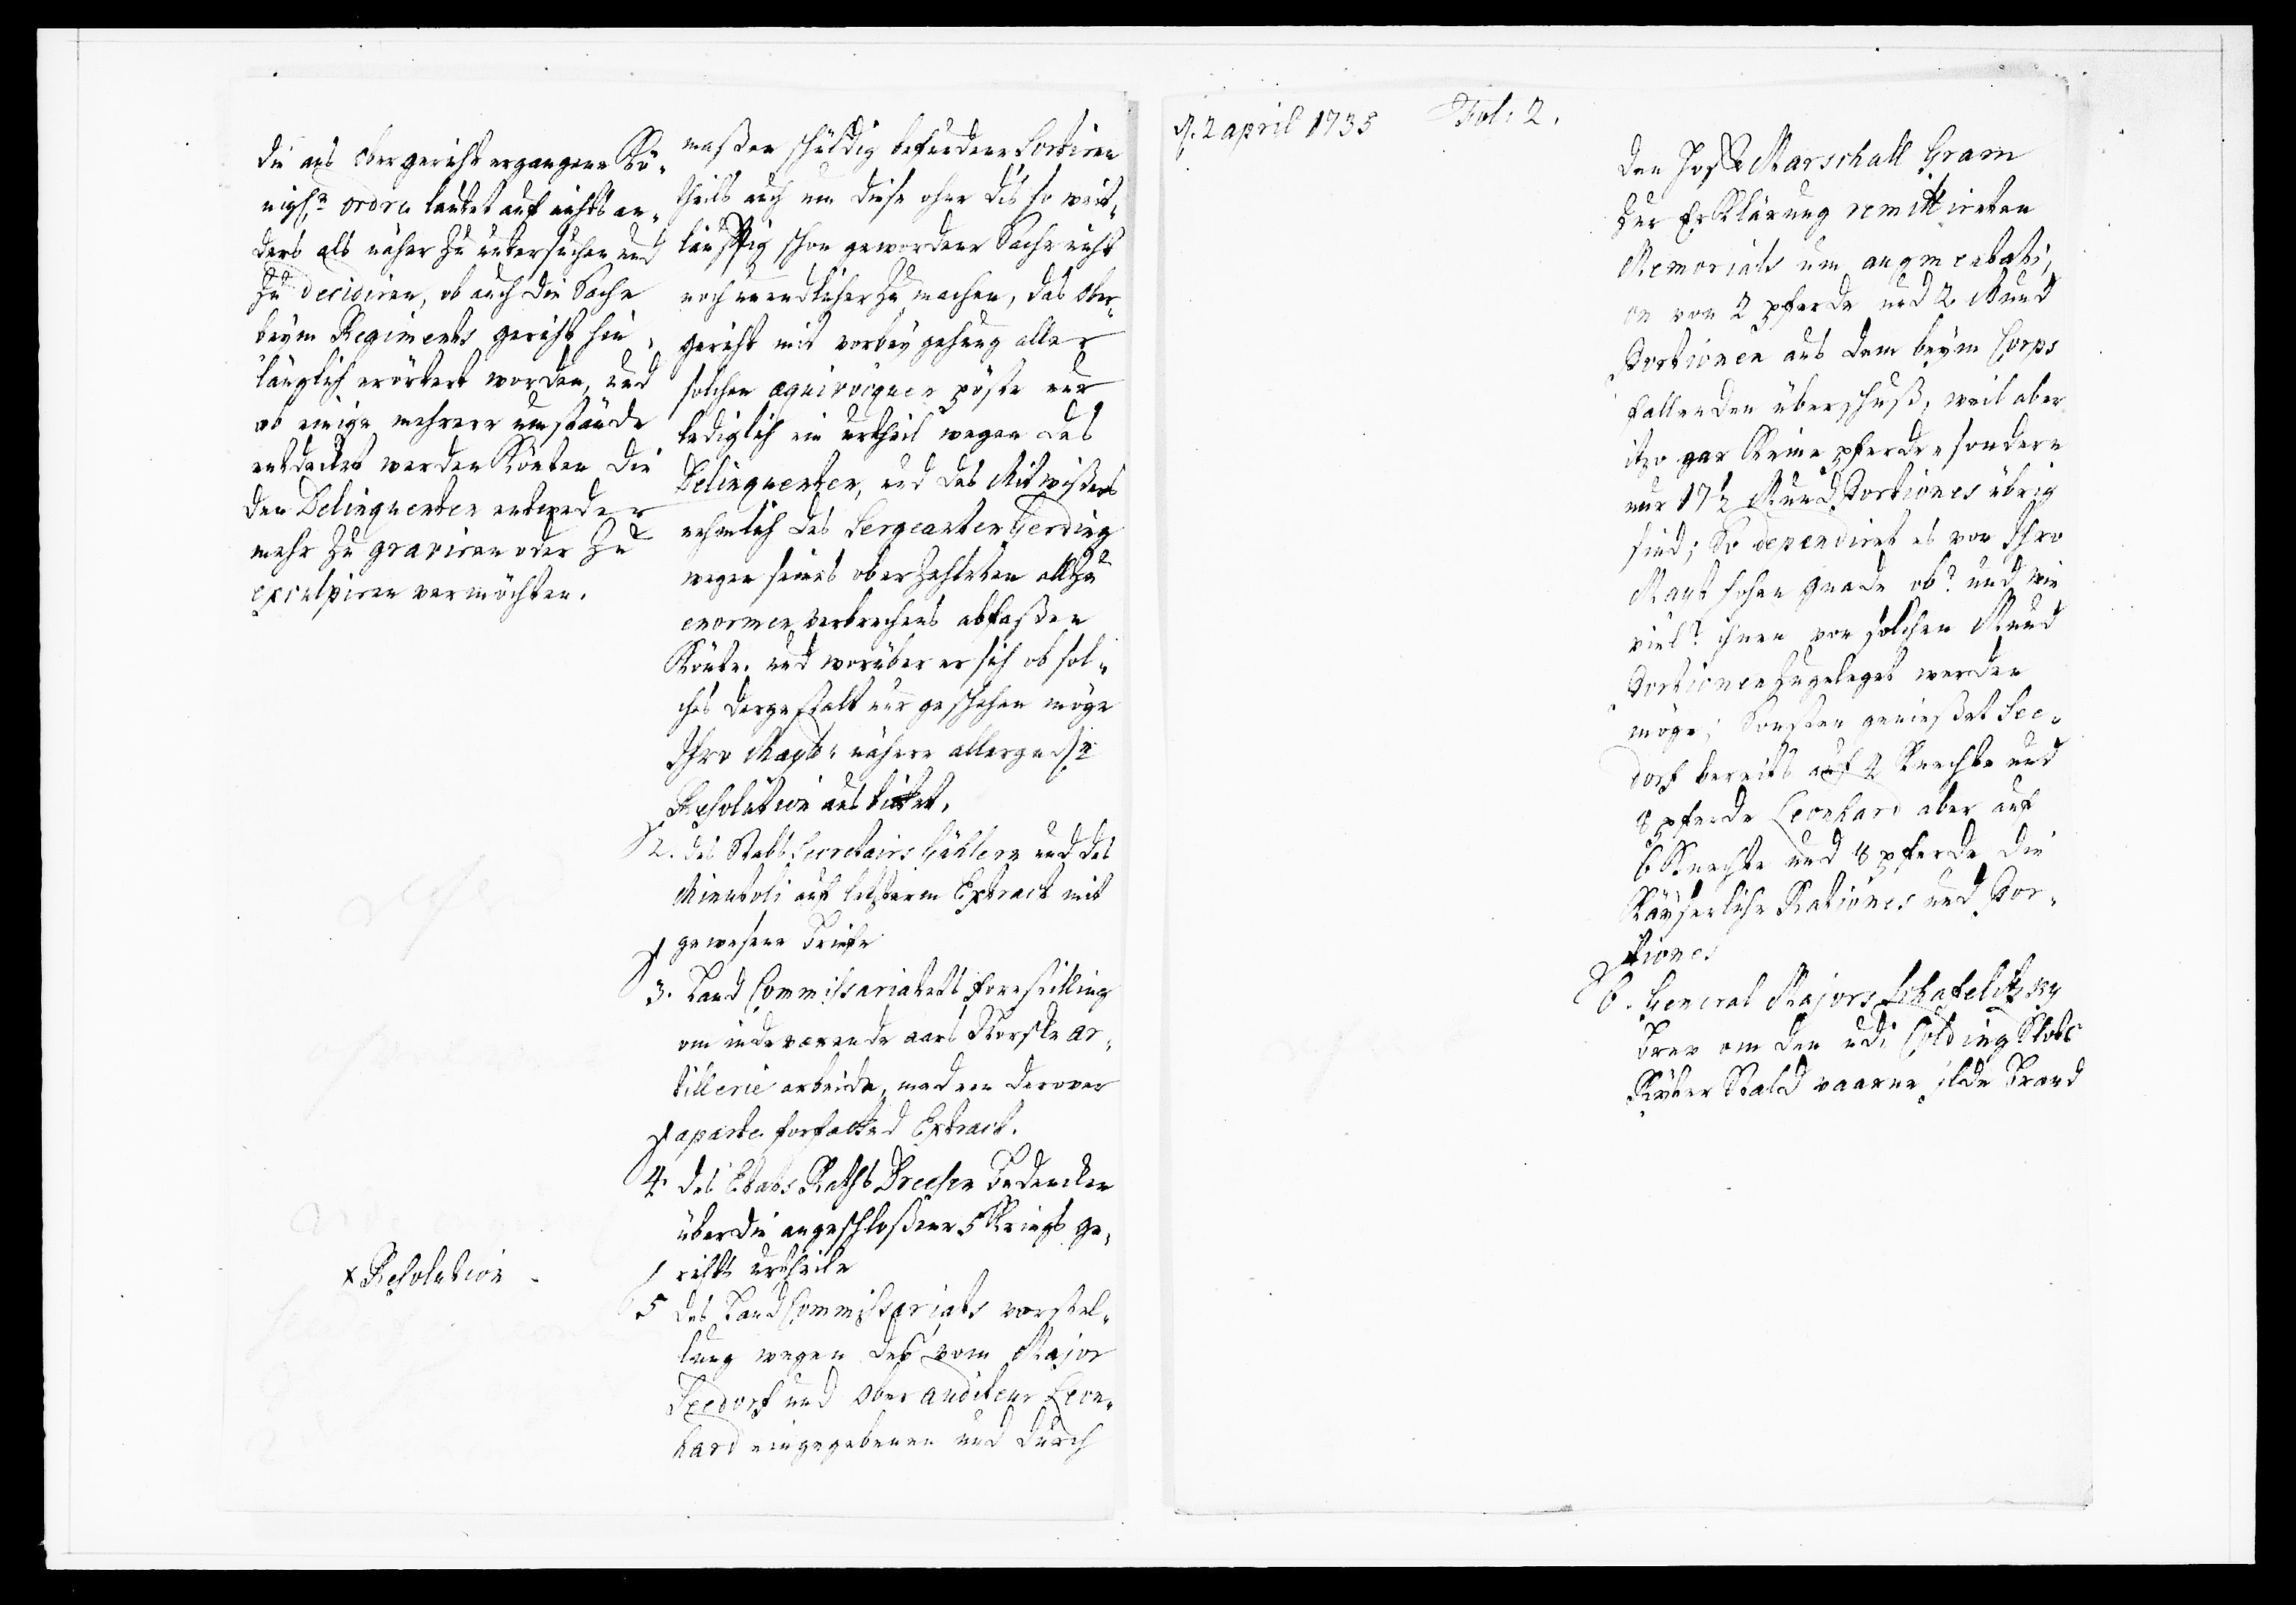 die ans Obergericht ergangene Kö-
nigl:e ordre lautet auf nichts an-
ders als näher zu untersuchen und
zu decidiren, ob auch die Sache
beym Regiments gericht hin-
länglich erörtert worden, und
ob einige mehrere umstände
entdecket werden könten die
den Delinquenten entweder
mehr zu graviren oder zu
exculpiren vermöchten.
× Resolution
maßen schuldig befundene
theils auch um diese ohne dis so weit-
läufftig schon gewordene Sache nicht
noch unendlicher zu machen, das Ober-
gericht mit vorbeygehung aller
solchen æquivoquen pöste nur
lediglich ein urtheil wegen des
Delinquenten, und des Mitwißers
nehmlich des Sergeanten Gerding
wegen seines oberzehlten allzu
enormen verbrechens abfaßen
könte. und worüber er sich ob sol-
ches dergestalt nur geschehen möge
Ihro Mayt: nähere allergndste
Resolution aus bittet.
2. des Stabs Secretairs Gählern und des
auf letzterm Extract mit
gewesene Briefe
3. Land Commissariatets forestilling
om indeværende aars Norske ar-
tillerie arbeide, med een derover
aparte forfatted Extract.
4. des Etats Raths Dreesen Bedencken
über die angeschloßene 5 Kriegs ge-
richts urtheile
5 des Land Commissariats vorstel-
lung wegen des vom Major
Seedorf und Ober auditeur Leon-
hard eingegebenen und durch
d. 2 april 1735
Fol: 2.
den Hoff Marschall Gram
zur Erklärung remittireten
Memorials um augmentati-
on von 2 pferde und 2 Mund
Portionen aus dem beym Corps
fallenden überschuß, weil aber
itzo gar keine pferde sondern
nur 17½ Mund Portiones übrig
sind; So dependiret es von Ihro
Mayt hohen gnade ob? und wie
viel? ihnen von solchen Mund
Portionen zugeleget werden
möge; Sonsten genießet See-
dorf bereits auf 2 Knechte und
8 pferde Leonhard aber auf
6 Knechte und 8 pferde die
Käyserliche Rationes und Por-
tiones
6. General Majors Schafelitzky
Brev om den udi Colding Slots
Ryter Stald vaarne ilde Brand